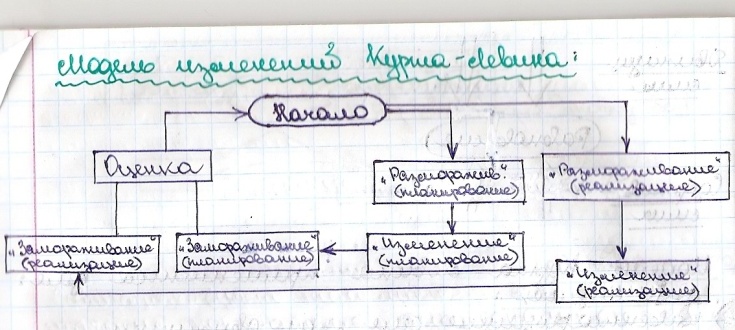 Модель изменений Курта-Левина:
Начало
Оценка
"Разморажив."
(планирование)
"Размораживание"
(реализация)
"Замораживание"
(реализация)
"Замораживание"
(планирование)
"Изменение"
(планирование)
"Изменение"
(реализация)